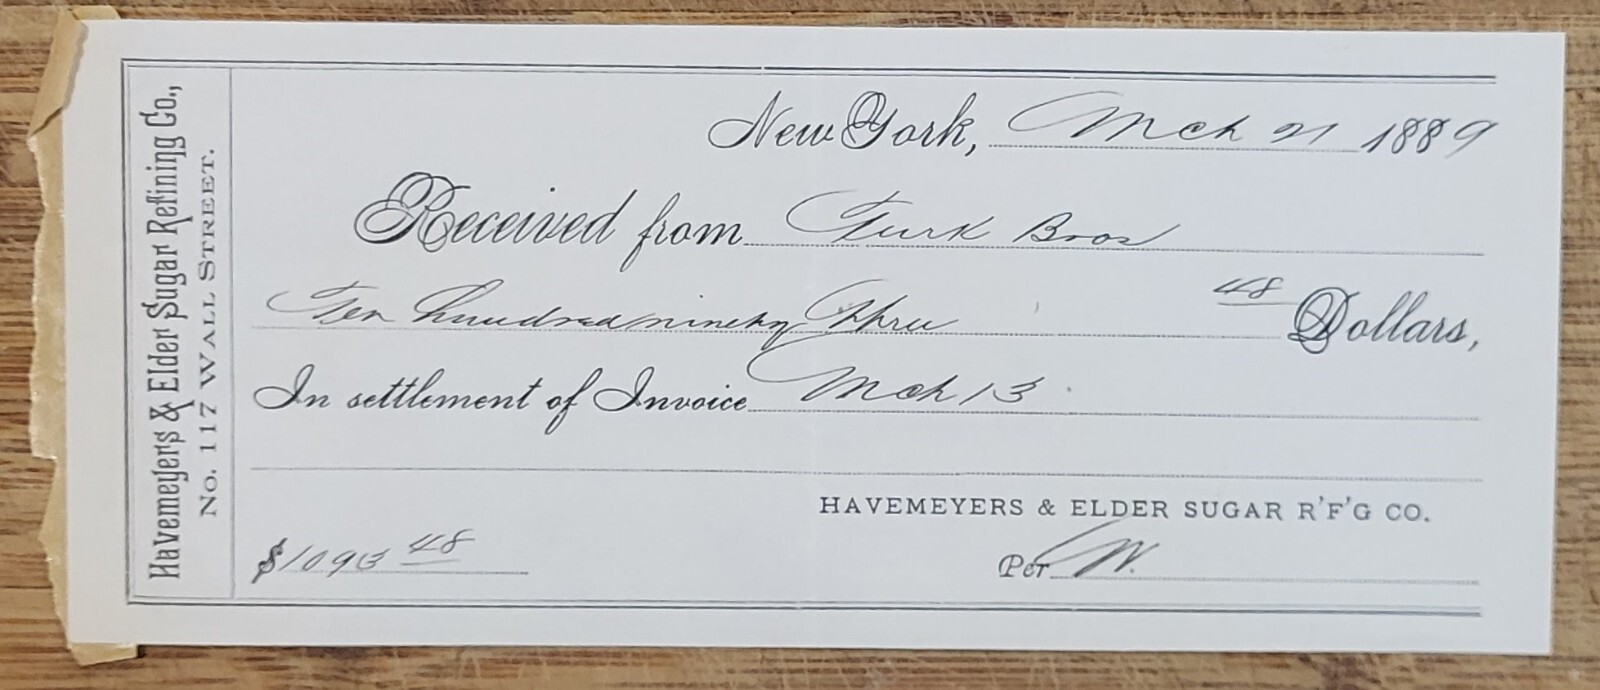 Havemeyers & Elder Sugar Refining Co.,
No. 117 WALL STREET.
New York, Mch 21 1889
Received from Turk Bros
Ten hundred ninety three 48 Dollars,
In settlement of Invoice Mch 13
HAVEMEYERS & ELDER SUGAR R'F'G CO.
$1093 48
Per W.